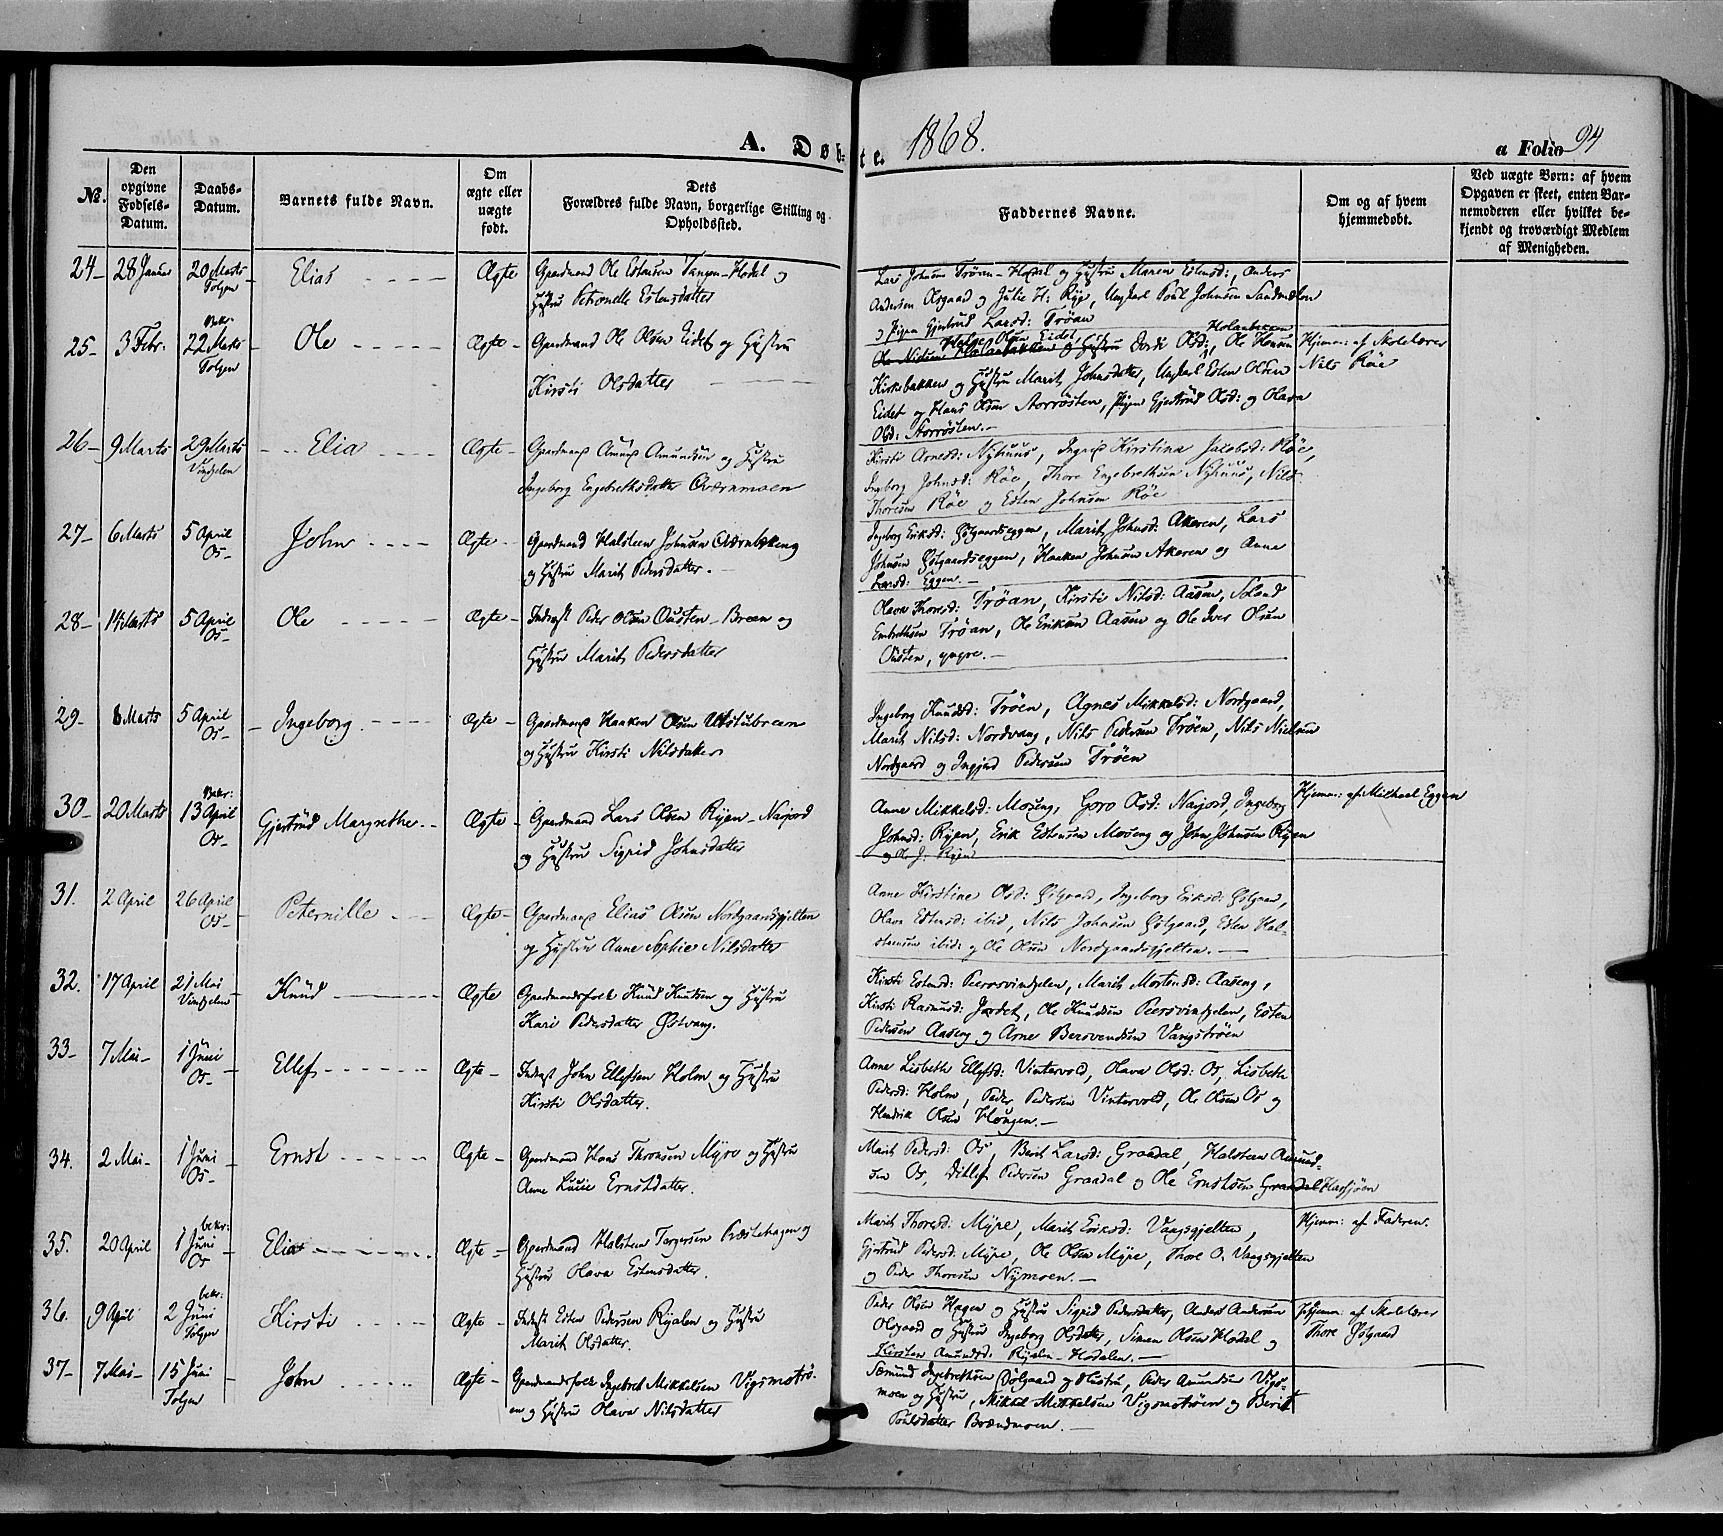 A. Døb-
te. 1868.
a Folio 94
№.
Den opgivne Fødsels-Datum.
Daabs-Datum.
Barnets fulde Navn.
Om ægte eller uægte født.
Dets Forældres fulde Navn, borgerlige Stilling og Opholdssted.
Faddernes Navne.
Om og af hvem hjemmedøbt.
Ved uægte Børn: af hvem
Opgaven er skeet, enten Bar-
nemoderen eller hvilket be-
kjendt og troværdigt Medlem
af Menigheden.
24 - 28 Januar 20 Marts Tolgen - Elias - Ægte Gaardmand Ole Estensen Tangen-Hodal og
Hustru Petronelle Estensdatter
Lars Johnsen Trøan-Hodal og Hustru Maren Estensd:, Anders
Andersen Olsgaard og Julie H: Rye, Ungkarl Poul Johnsen Sandmælen
og Pigen Gjertrud Larsd: Trøan
25 - 3 Febr. Bekr: 22 Marts Tolgen Ole - Ægte - Gaardmand Ole Olsen Eidet og Hustru
Kirsti Olsdatter
Helge Olsen Eidet Holanbreen
Ole Nilsen Holanbakken og Hustru Dordi Olsd:, Ole Hansen
Kirkebakken og Hustru Marit Johnsdatter, Ungkarl Esten Olsen
Eidet og Hans Olsen Aorrøsten, Pigen Gjertrud Olsd: og Olava
Olsd: Aorrøsten. -
Hjemm: af Skolelærer
Nils Røe
26 - 9 Marts 29 Marts Vintjelen - Elia Ægte - Gaardmand Amund Amundsen og Hustru
Ingeborg Engebrethsdatter Qværnmoen
Kirsti Arnesd: Nyhuus, Ingrid Kirstina Jacobsd: Røe,
Ingeborg Johnsd: Røe, Thore Engebrethsen Nyhuus, Nils
Thoresen Røe og Esten Johnsen Røe
27 - 6 Marts 5 April Os - John - Ægte - Gaardmand Halsteen Johnsen Qværnbækeng
og Hustru Marit Pedersdatter. -
Ingeborg Eriksd: Gjølgaardseggen, Marit Johnsd: Akeren, Lars
Johnsen Gjølgaardseggen, Haaken Johnsen Akeren og Anne
Larsd: Eggen. -
28 - 14 Marts 5 April Os - Ole - Ægte - Inderst Peder Olsen Ousten-Breen og
Hustru Marit Pedersdatter
Olava Thoresd: Trøan, Kirsti Nilsd: Aasen,
Embrethsen Trøan, Ole Eriksen Aasen og Ole Iver Olsen
Ousten, yngre. -
29 - 8 Marts 5 April Os - Ingeborg - Ægte - Gaardmand Haaken Olsen Utstubreen
og Hustru Kirsti Nilsdatter
Ingeborg Knudsd: Trøen, Agnes Mikkelsd: Nordgaard,
Marit Nilsd: Nordvang, Nils Pedersen Trøen, Nils Nielsen
Nordgaard og Ingjerd Pedersen Trøen
30 - 20 Marts Bekr: 13 April Os - Gjertrud Margrethe - Ægte - Gaardmand Lars Olsen Ryen-Narjord
og Hustru Sigrid Johnsdatter
Anne Mikkelsd: Moseng, Goro Olsd: Narjord, Ingeborg
Johnsd: Ryen, Erik Estensen Moseng og John Johnsen Ryen
og Ole J. Ryen
Hjemm: af Michael Eggen
31. 2 April 26 April Os - Peternille - Ægte - Gaardmand Elias Olsen Nordgaardsgjelten
og Hustru Anne Sophie Nilsdatter
Anne Kirstine Olsd: Gjølgaard, Ingeborg Eriksd: Gjølgaard,
Olava Estensd: ibid, Nils Johnsen Gjølgaard, Esten Hal-
stensen ibid: og Ole Olsen Nordgaardsgjelten. -
32. 17 April 21 Mai Vintjelen - Knud - Ægte Gaardmandsfolk Knud Knutsen og Hustru
Kari Pedersdatter Østvang.
Kirsti Estensd: Peersvintjelen, Marit Mortensd: Aaseng,
Kirsti Rasmusd: Jordet, Ole Knudsen Peersvintjelen, Esten
Pedersen Aaseng og Arne Bersvendsen Vangstrøen
33 - 7 Mai - 1 Juni Os - Ellef - Ægte - Inderst John Ellefsen Holm og Hustru
Kirsti Olsdatter.
Anne Lisbeth Ellefsd: Vintervold, Olava Olsd: Os, Lisbeth
Pedersd: Holm, Peder Pedersen Vintervold, Ole Olsen Os og
Hendrik Olsen Hougen. -
34. 2 Mai - 1 Juni Os - Ernst - Ægte - Gaardmand Hans Thronsen Myro og Hustru
Anne Lucie Ernstdatter.
Marit Pedersd: Os, Berit Larsd: Graadal, Halsteen Amund-
sen Os, Ditlef Pedersen Graadal og Ole Ernstsen Graadal Harsjøen
35. 20 April bekr: 1 Juni Os - Elias - Ægte - Gaardmand Halsteen Torgersen Præstehagen og
Hustru Olava Estensdatter.
Marit Thoresd: Myre, Marit Eriksd: Vangsgjelten,
Gjertrud Pedersd: Myre, Ole Olsen Myre, Thore O. Vangsgjelten
og Peder Thoresen Nymoen. -
Hjemm: af Faderen.
36. 9 April bekr: 2 Juni Tolgen - Kirsti - Ægte - Inderst Esten Pedersen Ryalen og Hustru
Marit Olsdatter.
Peder Olsen Hagen og Hustru Sigrid Pedersdatter, Anders Andersen
Olsgaard og Hustru Ingeborg Olsdatter, Simen Olsen Hodal og
Kirsten Amundsd: Ryalen-Hodalen. -
Hjemm: af Skolelærer
Thore Gjølgaard
37 - 7 Mai - 15 Juni Tolgen - John - Ægte - Gaardmandsfolk Ingebret Mikkelsen Vigsmotrø-
en og Hustru Olava Nilsdatter
Sæmund Ingebrethsen Gjølgaard og Hustru, Peder Amundsen Vigs-
moen og Hustru, Mikkel Mikkelsen Vigsmotrøen og Berit
Poulsdatter Brændmoen. -